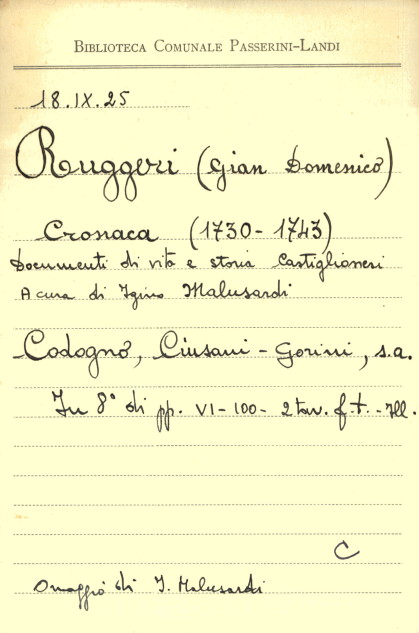 BIBLIOTECA COMUNALE PASSERINI-LANDI
18.IX.25
Ruggeri (Gian Domenico)
Cronaca (1730-1743)
Documenti di vita e storia Castiglioneri
A cura di Igino Malusardi
Codogno, Ciusani-Gorini, s.a.
In 8° di pp. VI-100- 2 tav. f.t.-Ill.
C
Omaggio di I. Malusardi